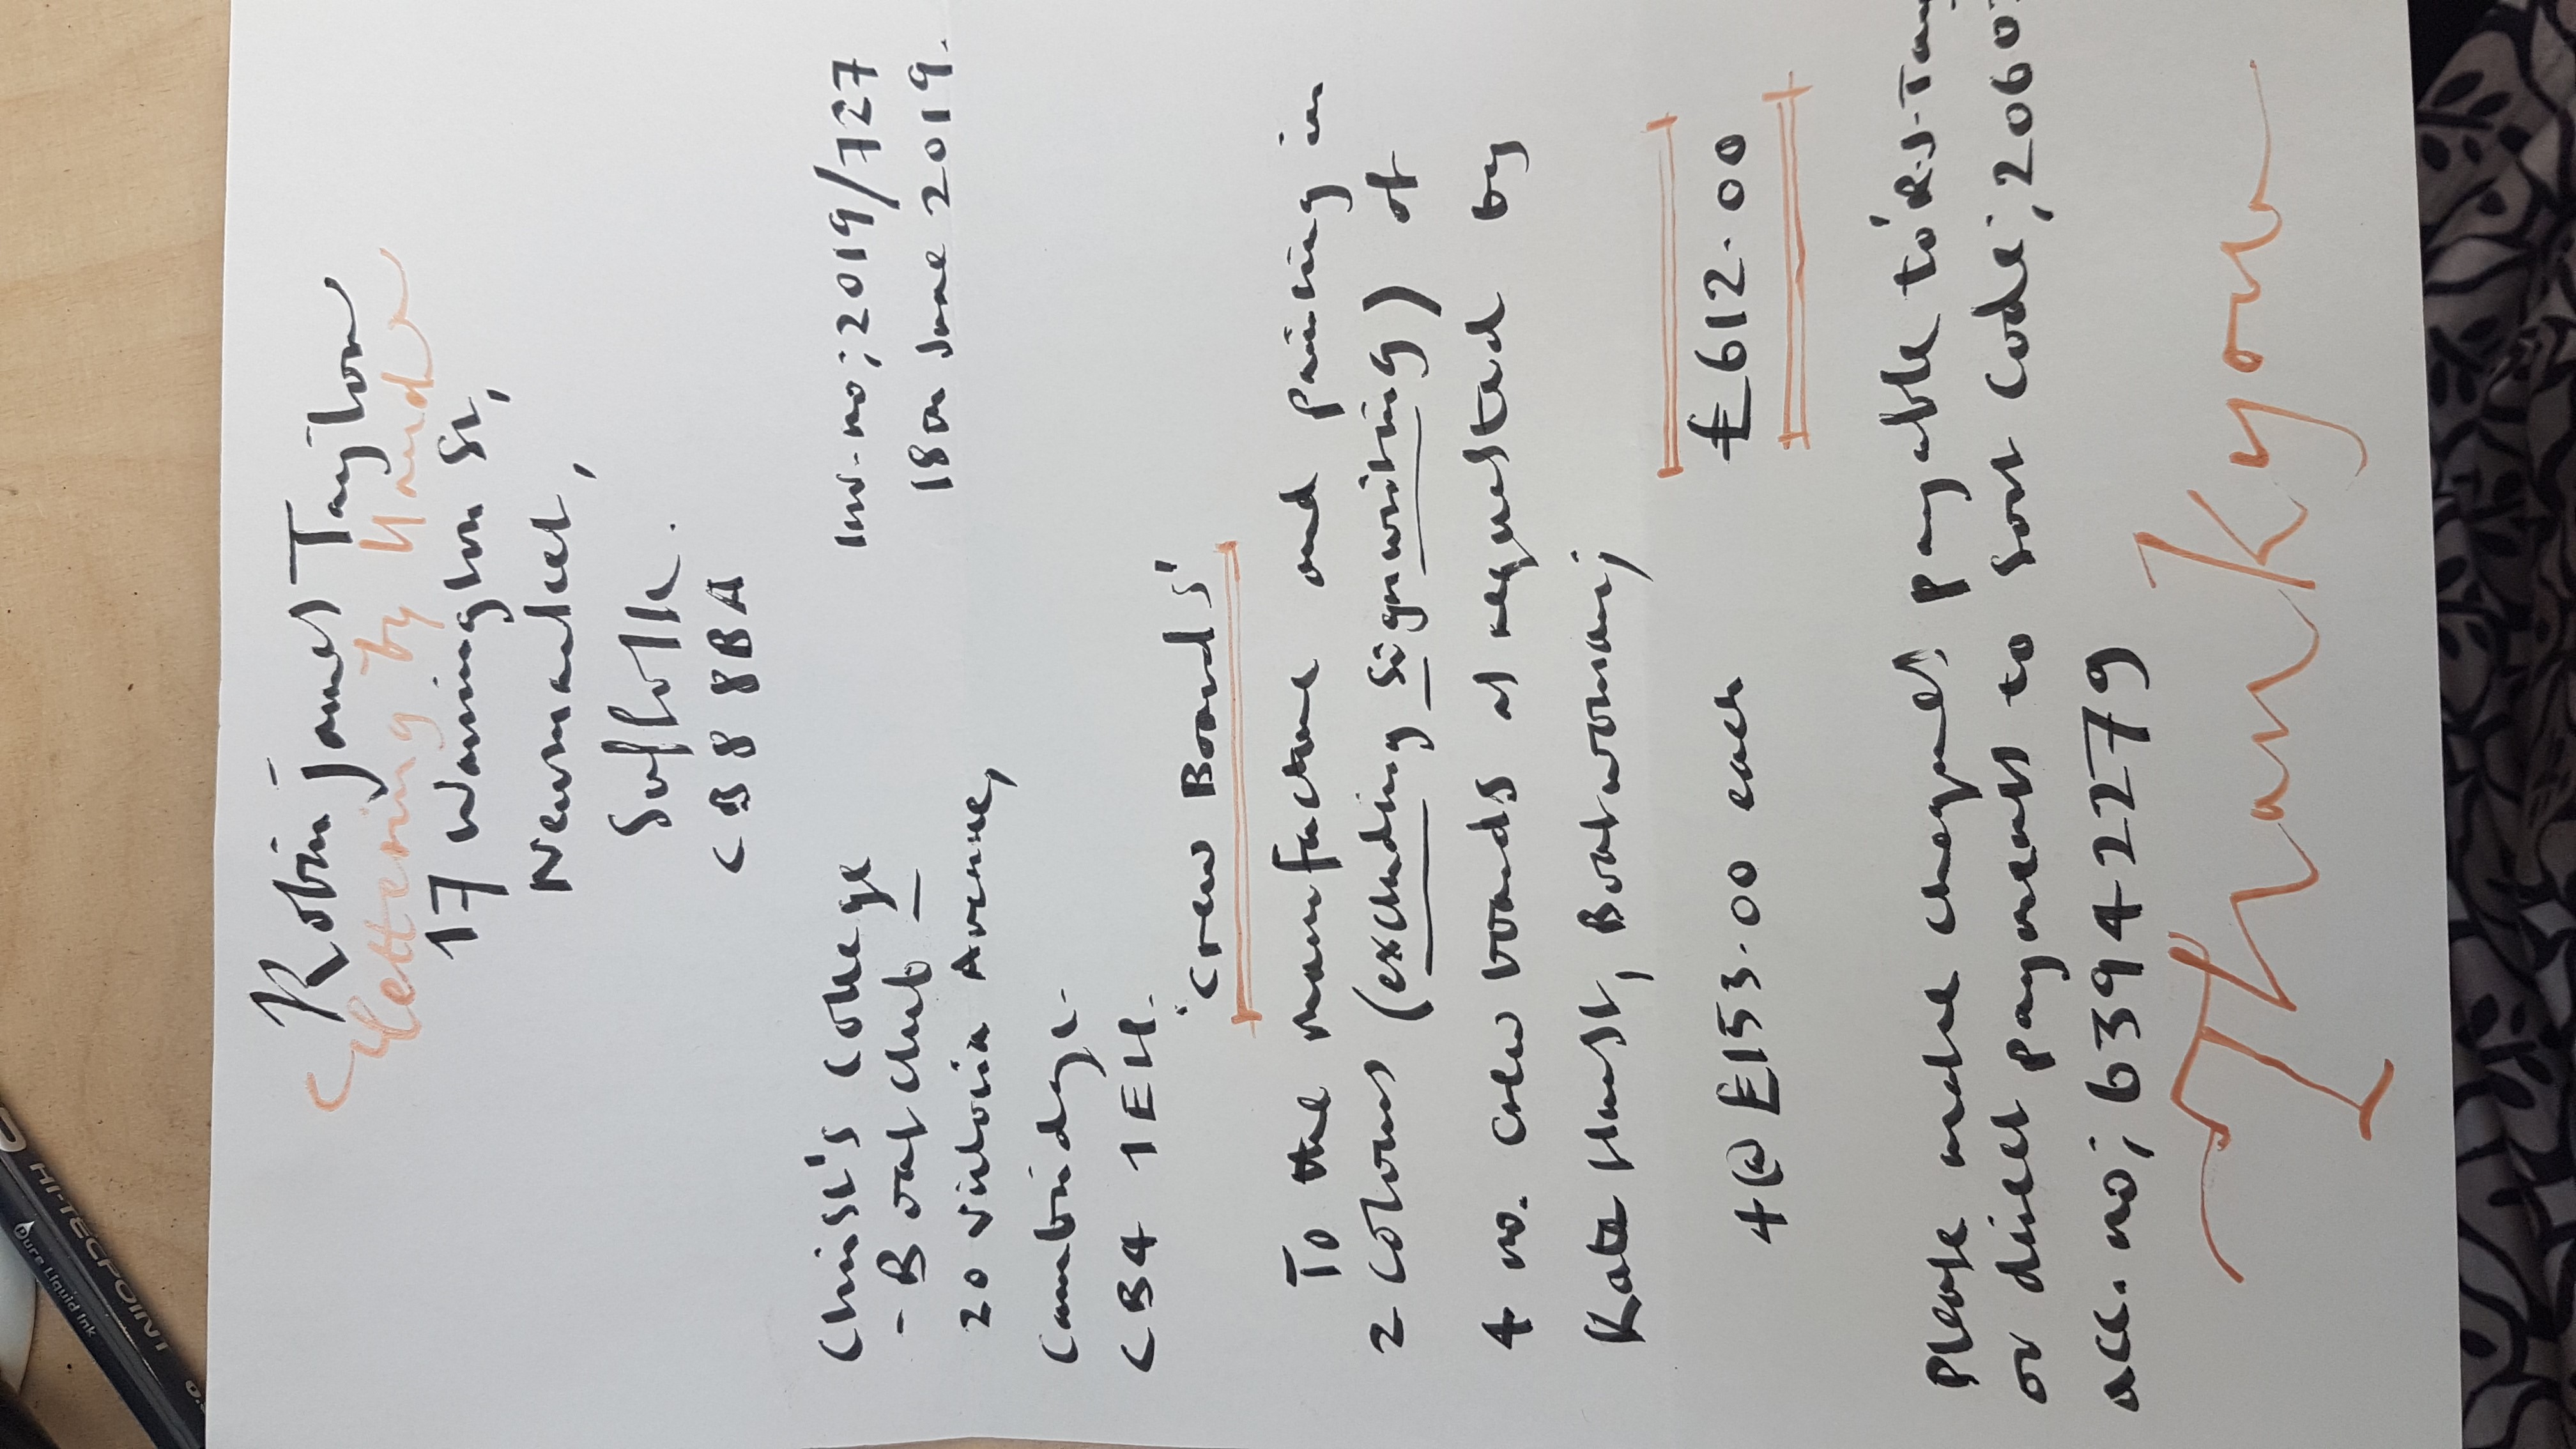 Robin James Taylor
Lettering by Hand
17 Warrington St,
Newmarket,
Suffolk.
CB8 8BA
Inv-no; 2019/727
18th June 2019.
Christ's College
- Boat Club -
20 Victoria Avenue,
Cambridge.
CB4 1EH.
'Crew Boards'
To the manufacture and painting in
2 colours (excluding signwriting) of
4 no. crew boards as requested by
Kate Hurst, Boatwoman;
4 @ £153.00 each £612.00
Please make cheques payable to 'R.J-Tay
or direct payments to Sort Code; 2060
acc. no; 63942279
Thankyou
HI-TECPOINT
Pure Liquid Ink